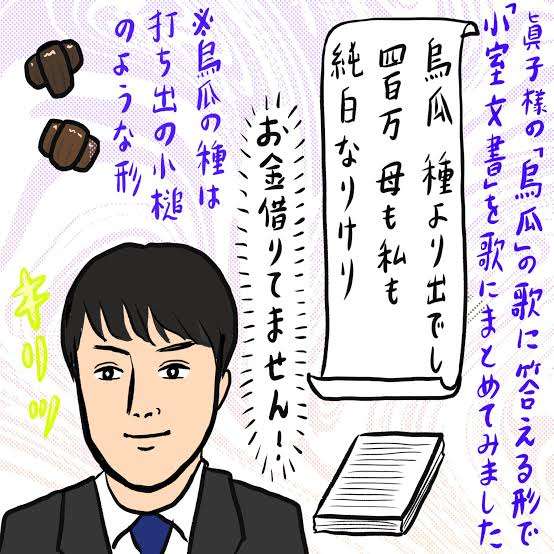 眞子様の「烏瓜」の歌に答える形で
「小室文書」を歌にまとめてみました
烏瓜 種より出でし
四百万 母も私も
純白なりけり
お金借りてません!
※烏瓜の種は
打ち出の小槌
のような形
キリッ